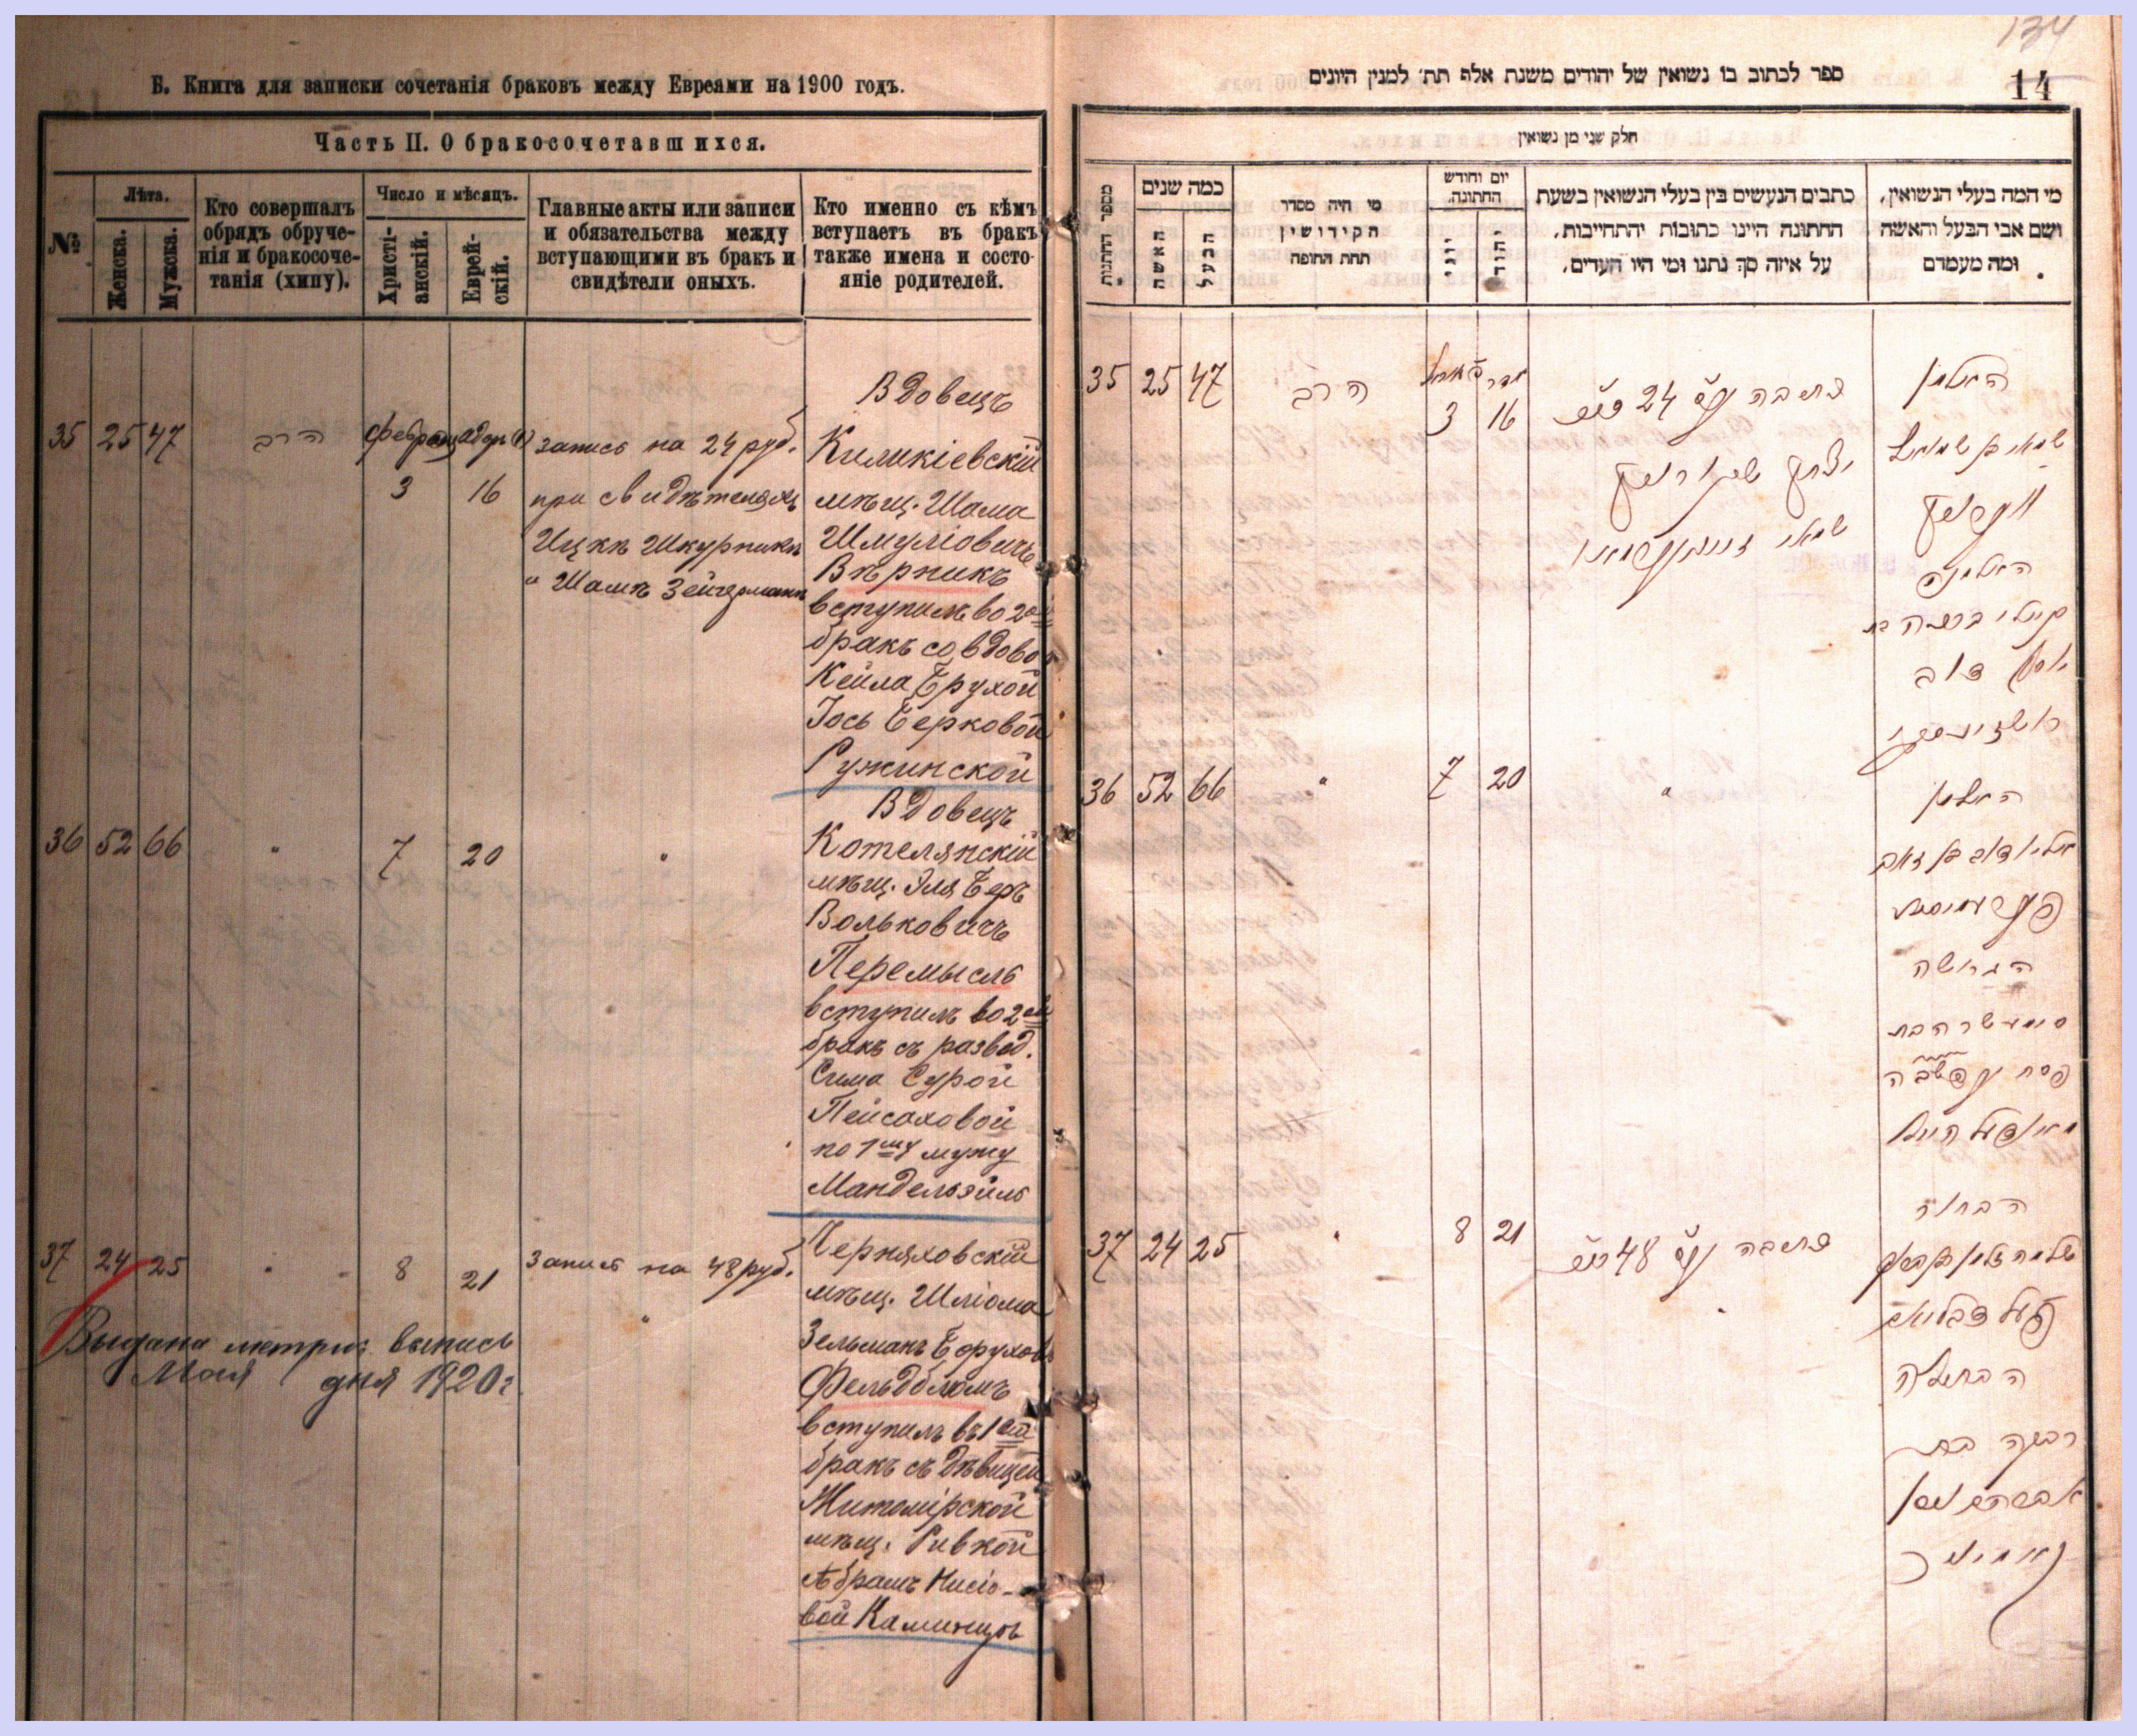 134
14
Б. Книга для записки сочетанія браковъ между Евреями на 1900 годъ.
Часть II. О бракосочетавшихся.
№
Лѣта.
Женска.
Мужска.
Кто совершалъ
обрядъ обруче-
нія и бракосоче-
танія (хипу).
Число и мѣсяцъ.
Христі-
анскій.
Еврей-
скій.
Главные акты или записи
и обязательства между
вступающими въ бракъ и
свидѣтели оныхъ.
Кто именно съ кѣмъ
вступаетъ въ бракъ
также имена и состо-
яніе родителей.
35 25 47
הרב
3 16
запись на 24 руб.
при свидѣтеляхъ
Ицкѣ Шкурникѣ
" Шамѣ Зейгерманѣ
Вдовецъ
Киликіевскій
мѣщ. Шама
Шмуліовичъ
Вѣрникъ
вступилъ во 2ой
бракъ со вдовой
Кейла Брухой
Іось Берковой
Ружинской
36 52 66
"
7 20
"
Вдовецъ
Котелянскій
мѣщ. Эля Беръ
Вольковичъ
Перемысль
вступилъ во 2ой
бракъ съ развед.
Сима Сурой
Пейсаховой
по 1му мужу
Мандельэйль
37 24 25
"
8 21
Запись на 48 руб.
"
Черняховскій
мѣщ. Шліома
Зельманъ Борухов
Фельдблюмъ
вступилъ въ 1ый
бракъ съ дѣвицей
Житомірской
мѣщ. Ривкой
Абрамъ Нисіо-
вой Каминцъ
Выдана метрич. выпись
Мая дня 1920 г.
ספר לכתוב בו נשואין של יהודים משנת אלף תת׳ למנין היונים
חלק שני מן נשואין
מספר החתנות
כמה שנים
האשה
הבעל
מי היה מסדר
הקידושין
תחת החופה
יום וחודש
החתונה.
יוני
יהודי
כתבים הנעשים בין בעלי הנשואין בשעת
החתונה היינו כתובות יהתחייבות,
על איזה סך נתנו ומי היו העדים,
מי המה בעלי הנשואין,
ושם אבי הבעל והאשה
ומה מעמדם
35 25 47
הרב
3 16
כתובה 24
האלמן
האלמנה
36 52 66
"
7 20
"
האלמן
הגרושה
37 24 25
"
8 21
כתובה 48
"
הבחור
הבתולה
רבקה בת